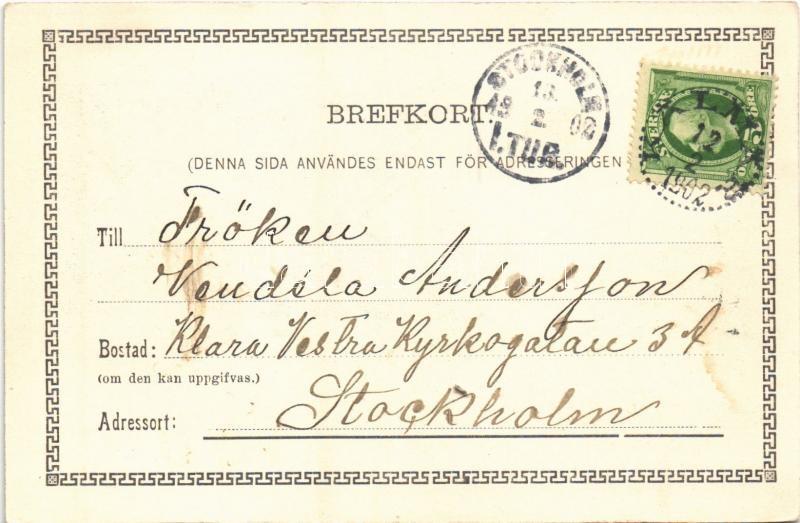 BREFKORT.
(DENNA SIDA ANVÄNDES ENDAST FÖR ADRESSERINGEN
STOCKHOLM
13.
2
02
1.TUR.
SVERIGE
ÖRE
12
2
1902
Till Fröken
Vendela Andersson
Bostad: Klara Vestra Kyrkogatan 3 A
(om den kan uppgifvas.)
Adressort: Stockholm